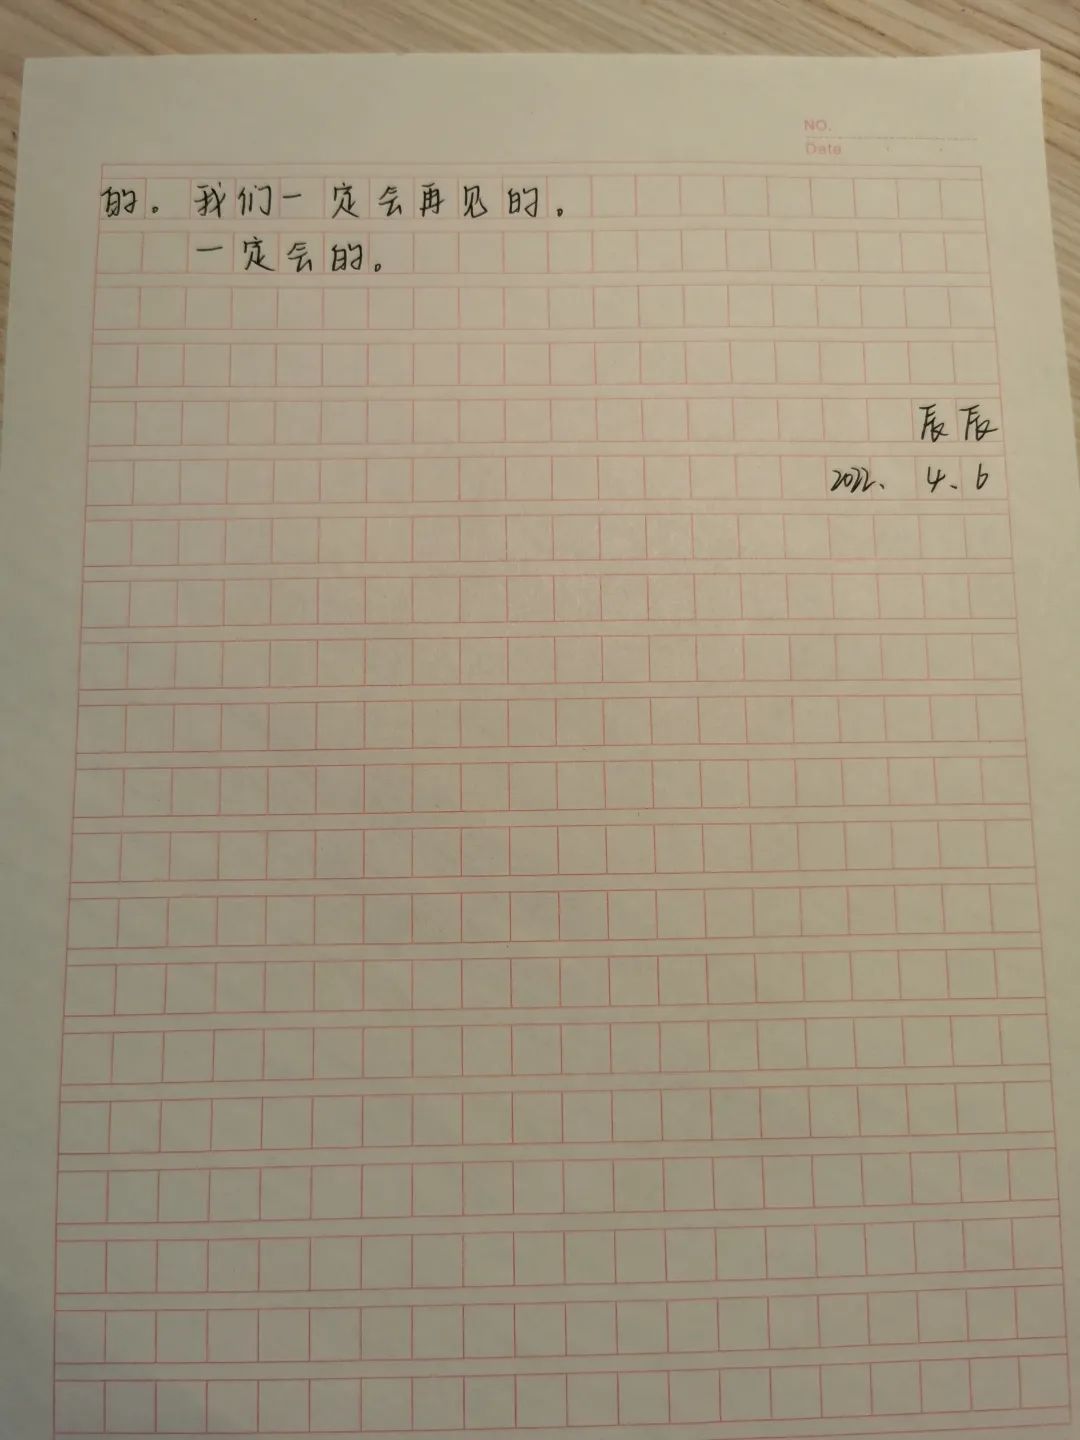 NO.
Date
的。我们一定会再见的。
一定会的。
辰辰
2022、4、6